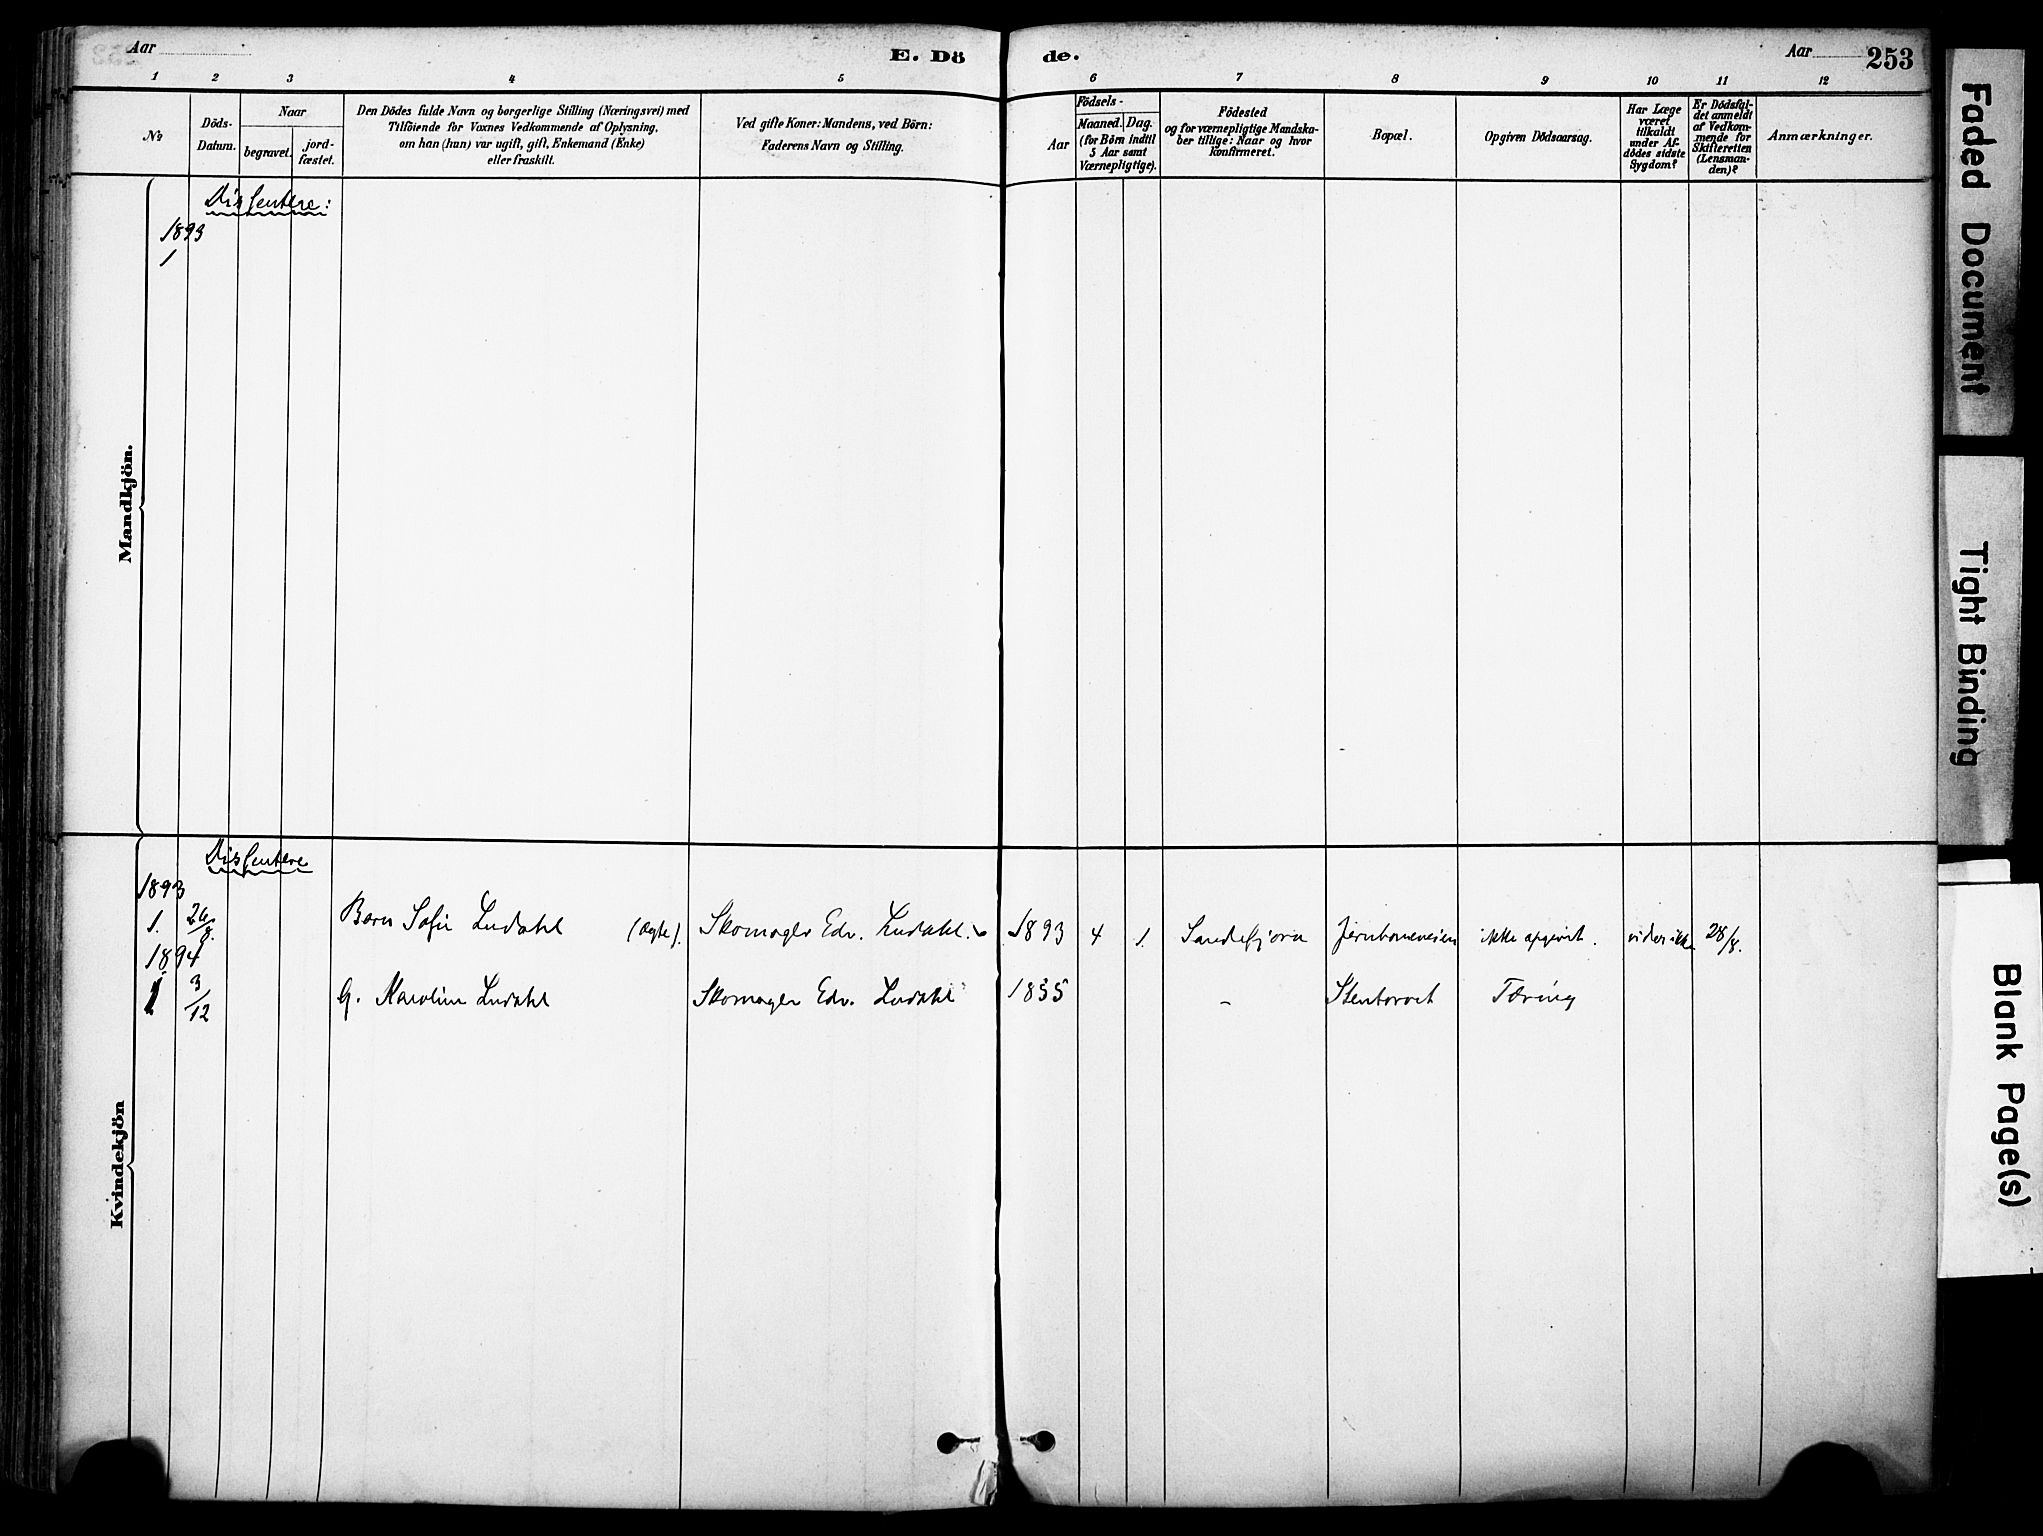 Aar
E. Dö
de.
Aar
253
1 2 3 4 5 6 7 8 9 10 11 12
No
Döds-
Datum.
Naar
begravet.
jord-
fæstet.
Den Dödes fulde Navn og borgerlige Stilling (Næringsvei) med
Tilföiende for Voxnes Vedkommende af Oplysning,
om han (hun) var ugift, gift, Enkemand (Enke)
eller fraskilt.
Ved gifte Koner: Mandens, ved Börn:
Faderens Navn og Stilling.
Födsels-
Aar
Maaned. Dag.
(for Börn indtil
5 Aar samt
Værnepligtige).
Födested
og for værnepligtige Mandska-
ber tillige: Naar og hvor
konfirmeret.
Bopæl.
Opgiven Dödsaarsag.
Har Læge
været
tilkaldt
under Af-
dödes sidste
Sygdom?
Er Dödsfal-
det anmeldt
af Vedkom-
mende for
Skifteretten
(Lensman-
den)?
Anmærkninger.
Mandkjön.
Dissentere:
1893
1
Kvindekjön
Dissentere
1893
1. 26/8. Barn Sofie Lindahl (ægte). Skomager Edv. Lindahl. 1893 4 1. Sandefjord Jernbaneveien ikke opgivet. vides ikke 28/8.
1894
1 3/12 G. Karoline Lindahl Skomager Edv. Lindahl 1855 - Stentorvet Tæring
Faded Document
Tight Binding
Blank Page(s)